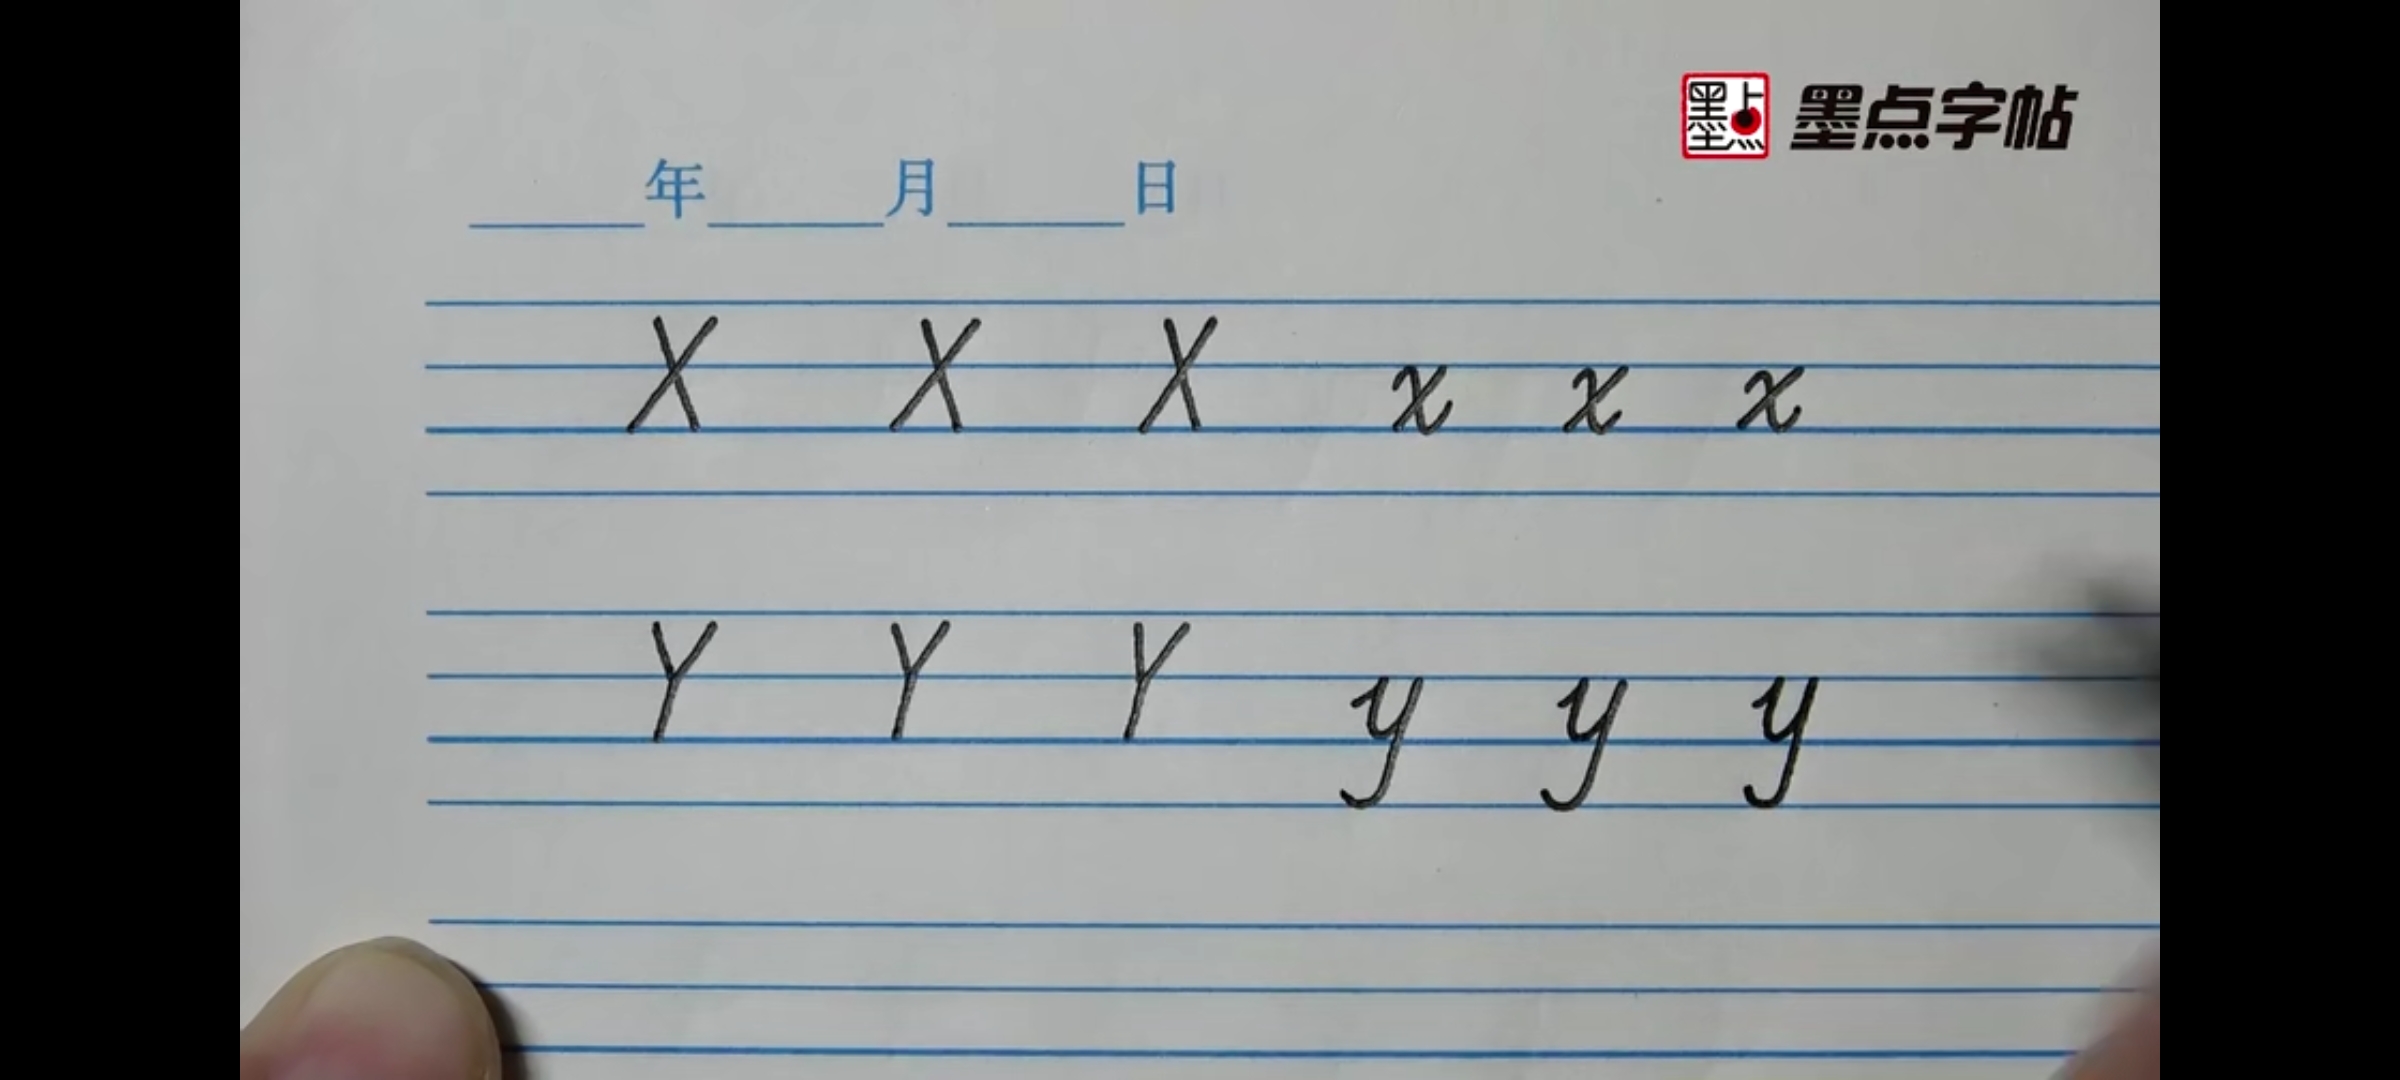 墨点 墨点字帖
年 月 日
X X X x x x
Y Y Y y y y